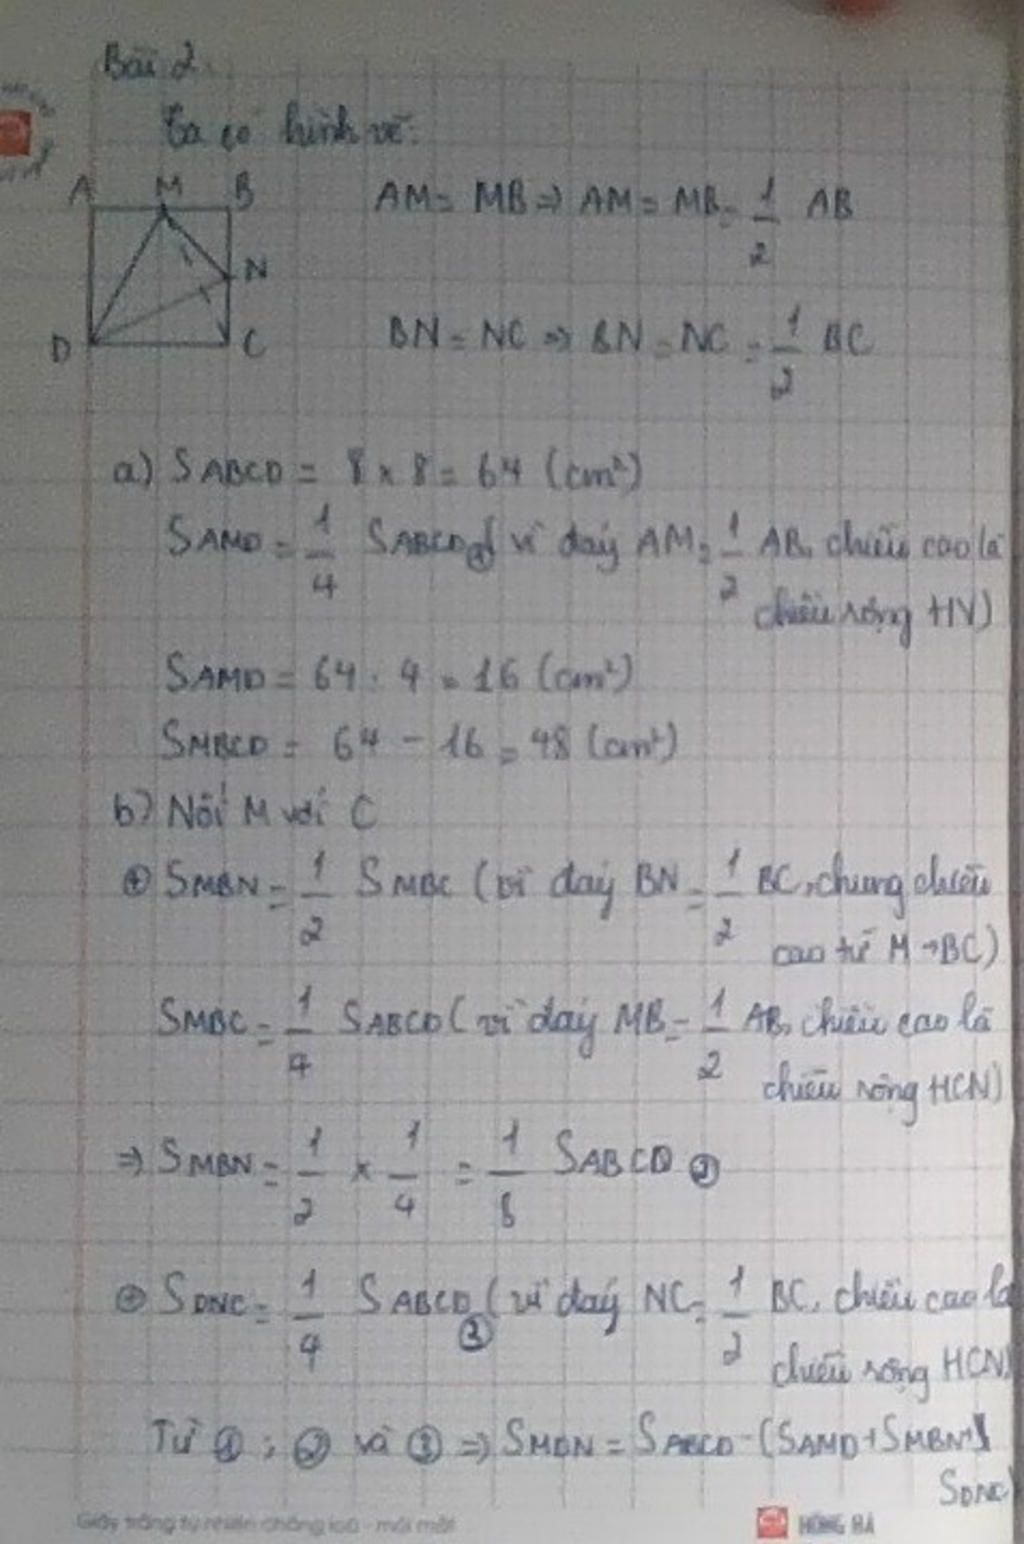 Bài 2.
Ta có hình vẽ:
A M B
N
D C
AM = MB ⇒ AM = MB = 1/2 AB
BN = NC ⇒ BN = NC = 1/2 BC
a) SABCD = 8 x 8 = 64 (cm²)
SAMD = 1/4 SABCD ① ( vì đáy AM = 1/2 AB, chiều cao là
chiều rộng HV)
SAMD = 64 : 4 = 16 (cm²)
SMBCD = 64 - 16 = 48 (cm²)
b) Nối M với C
⊕ SMBN = 1/2 SMBC (vì đáy BN = 1/2 BC, chung chiều
cao từ M → BC)
SMBC = 1/4 SABCD ( vì đáy MB = 1/2 AB, chiều cao là
chiều rộng HCN)
⇒ SMBN = 1/2 x 1/4 = 1/8 SABCD ②
⊕ SDNC = 1/4 SABCD ③ (vì đáy NC = 1/2 BC, chiều cao là
chiều rộng HCN)
Từ ① ; ② và ③ ⇒ SMDN = SABCD - (SAMD + SMBN +
SDNC)
Giấy trắng tự nhiên chống loá - mỏi mắt
HỒNG HÀ